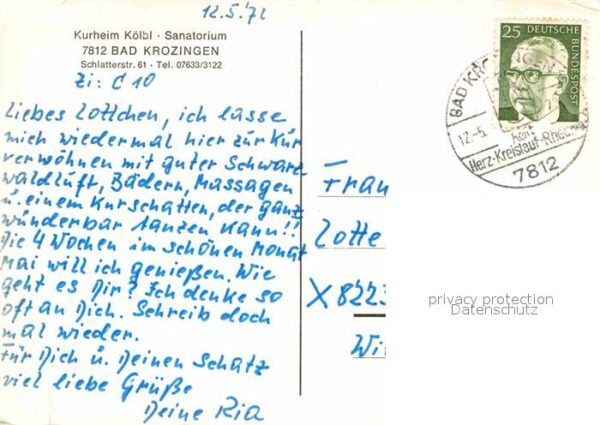 12.5.72
Kurheim Kölbl · Sanatorium
7812 BAD KROZINGEN
Schlatterstr. 61 · Tel. 07633/3122
Zi: C 10
Liebes Lottchen, ich lasse
mich wiedermal hier zur Kur
verwöhnen mit guter Schwarz
waldluft, Bädern, Massagen
u. einem Kurschatten, der ganz
wunderbar tanzen kann!!
Die 4 Wochen im schönen Monat
Mai will ich genießen. Wie
geht es Dir? Ich denke so
oft an Dich. Schreib doch
mal wieder.
Für Dich u. Deinen Schatz
viel liebe Grüße
Deine Ria
25 DEUTSCHE BUNDESPOST
BAD KROZINGEN
12.-5.
heilt
Herz-Kreislauf-Rheuma
7812
Frau
Lotte
X 822
privacy protection
Datenschutz